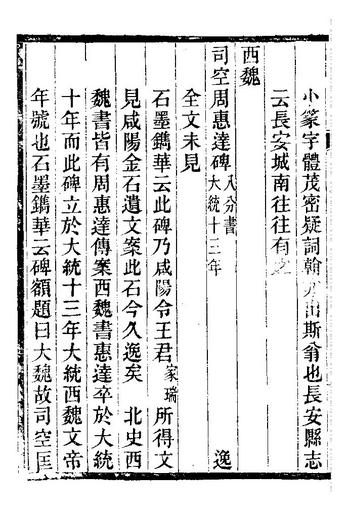 小篆字體茂密疑詞翰乃出斯翁也長安縣志
云長安城南往往有之
西魏
司空周惠達碑 八分書 大統十三年 逸
全文未見
石墨鐫華云此碑乃咸陽令王君家瑞所得文
見咸陽金石遺文案此石今久逸矣 北史西
魏書皆有周惠達傳案西魏書惠達卒於大統
十年而此碑立於大統十三年大統西魏文帝
年號也石墨鐫華云碑額題曰大魏故司空匡